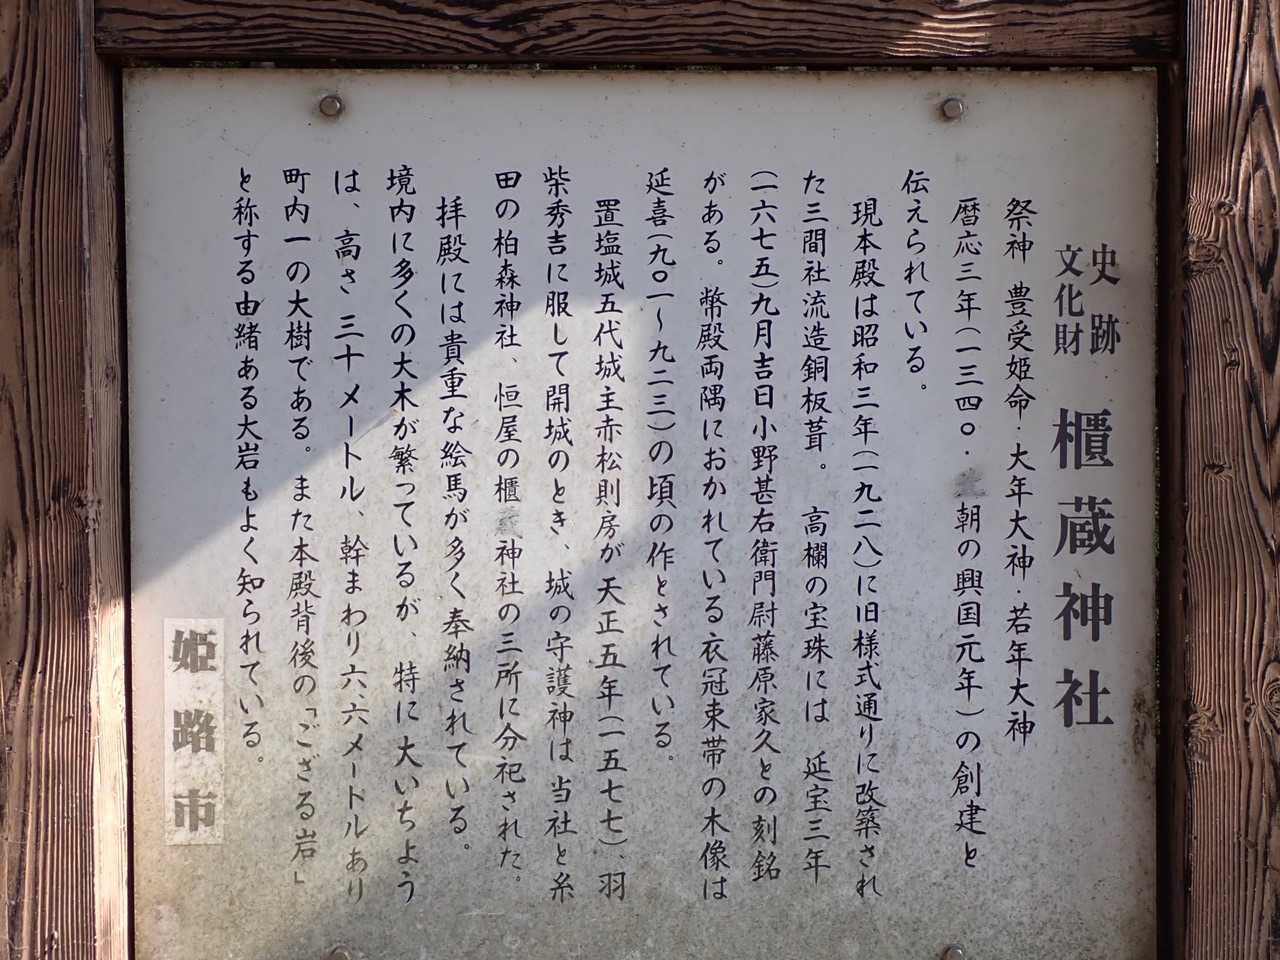 史跡
文化財
櫃蔵神社
祭神　豊受姫命・大年大神・若年大神
暦応三年(一三四〇・　朝の興国元年)の創建と
伝えられている。
現本殿は昭和三年(一九二八)に旧様式通りに改築され
た三間社流造銅板葺。高欄の宝珠には　延宝三年
(一六七五)九月吉日小野甚右衛門尉藤原家久との刻銘
がある。幣殿両隅におかれている衣冠束帯の木像は
延喜(九〇一〜九二三)の頃の作とされている。
置塩城五代城主赤松則房が天正五年(一五七七)、羽
柴秀吉に服して開城のとき、城の守護神は当社と糸
田の柏森神社、恒屋の櫃　神社の三所に分祀された。
拝殿には貴重な絵馬が多く奉納されている。
境内に多くの大木が繁っているが、特に大いちよう
は、高さ三十メートル、幹まわり六、六メートルあり
町内一の大樹である。また本殿背後の「ござる岩」
と称する由緒ある大岩もよく知られている。
姫路市